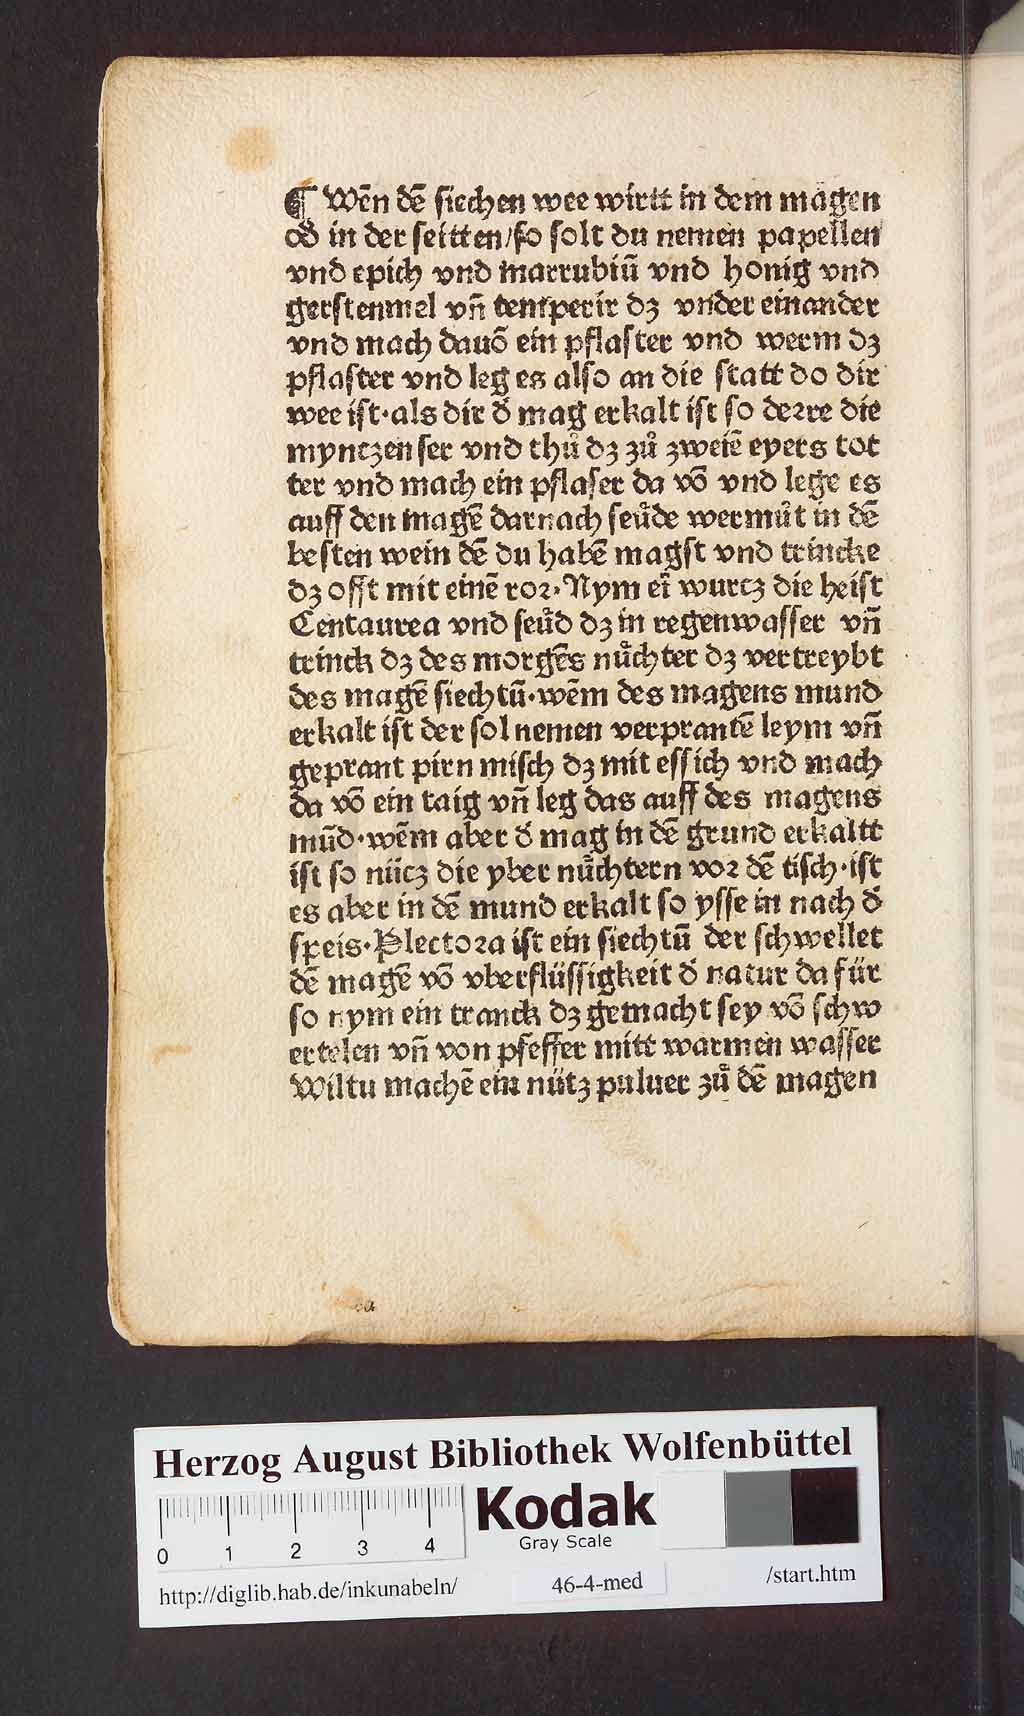 ¶ Wēn dē siechen wee wirtt in dem magen
od̛ in der seitten/so solt du nemen papellen
vnd epich vnd marrubiū vnd honig vnd
gerstenmel vn̄ temperir dʒ vnder einander
vnd mach dauō ein pflaster vnd werm dʒ
pflaster vnd leg es also an die statt do dir
wee ist·als dir d̛ mag erkalt ist so derre die
myntzen ser vnd thuͦ dʒ zuͦ zweiē eyers tot
ter vnd mach ein pflaser da vō vnd lege es
auff den magē darnach seuͤde wermuͦt in dē
besten wein dē du habē magst vnd trincke
dʒ offt mit einē ror·Nym eī wurcz die heist
Centaurea vnd seuͤd dʒ in regenwasser vn̄
trinck dʒ des morgēs nuͤchter dʒ vertreybt
des magē siechtū·wēm des magens mund
erkalt ist der sol nemen verprantē leym vn̄
geprant pirn misch dʒ mit essich vnd mach
da vō ein taig vn̄ leg das auff des magens
mūd·wēm aber d̛ mag in dē grund erkaltt
ist so nücz die yber nuͤchtern vor dē tisch·ist
es aber in dē mund erkalt so ysse in nach d̛
speis·Plectora ist ein siechtū der schwellet
dē magē vō vberflüssigkeit d̛ natur da für
so nym ein tranck dʒ gemacht sey vō schw
ertelen vn̄ von pfeffer mitt warmen wasser
Wiltu machē ein nütz puluer zuͦ dē magen
Herzog August Bibliothek Wolfenbüttel
0 1 2 3 4
Kodak
Gray Scale
http://diglib.hab.de/inkunabeln/ 46-4-med /start.htm